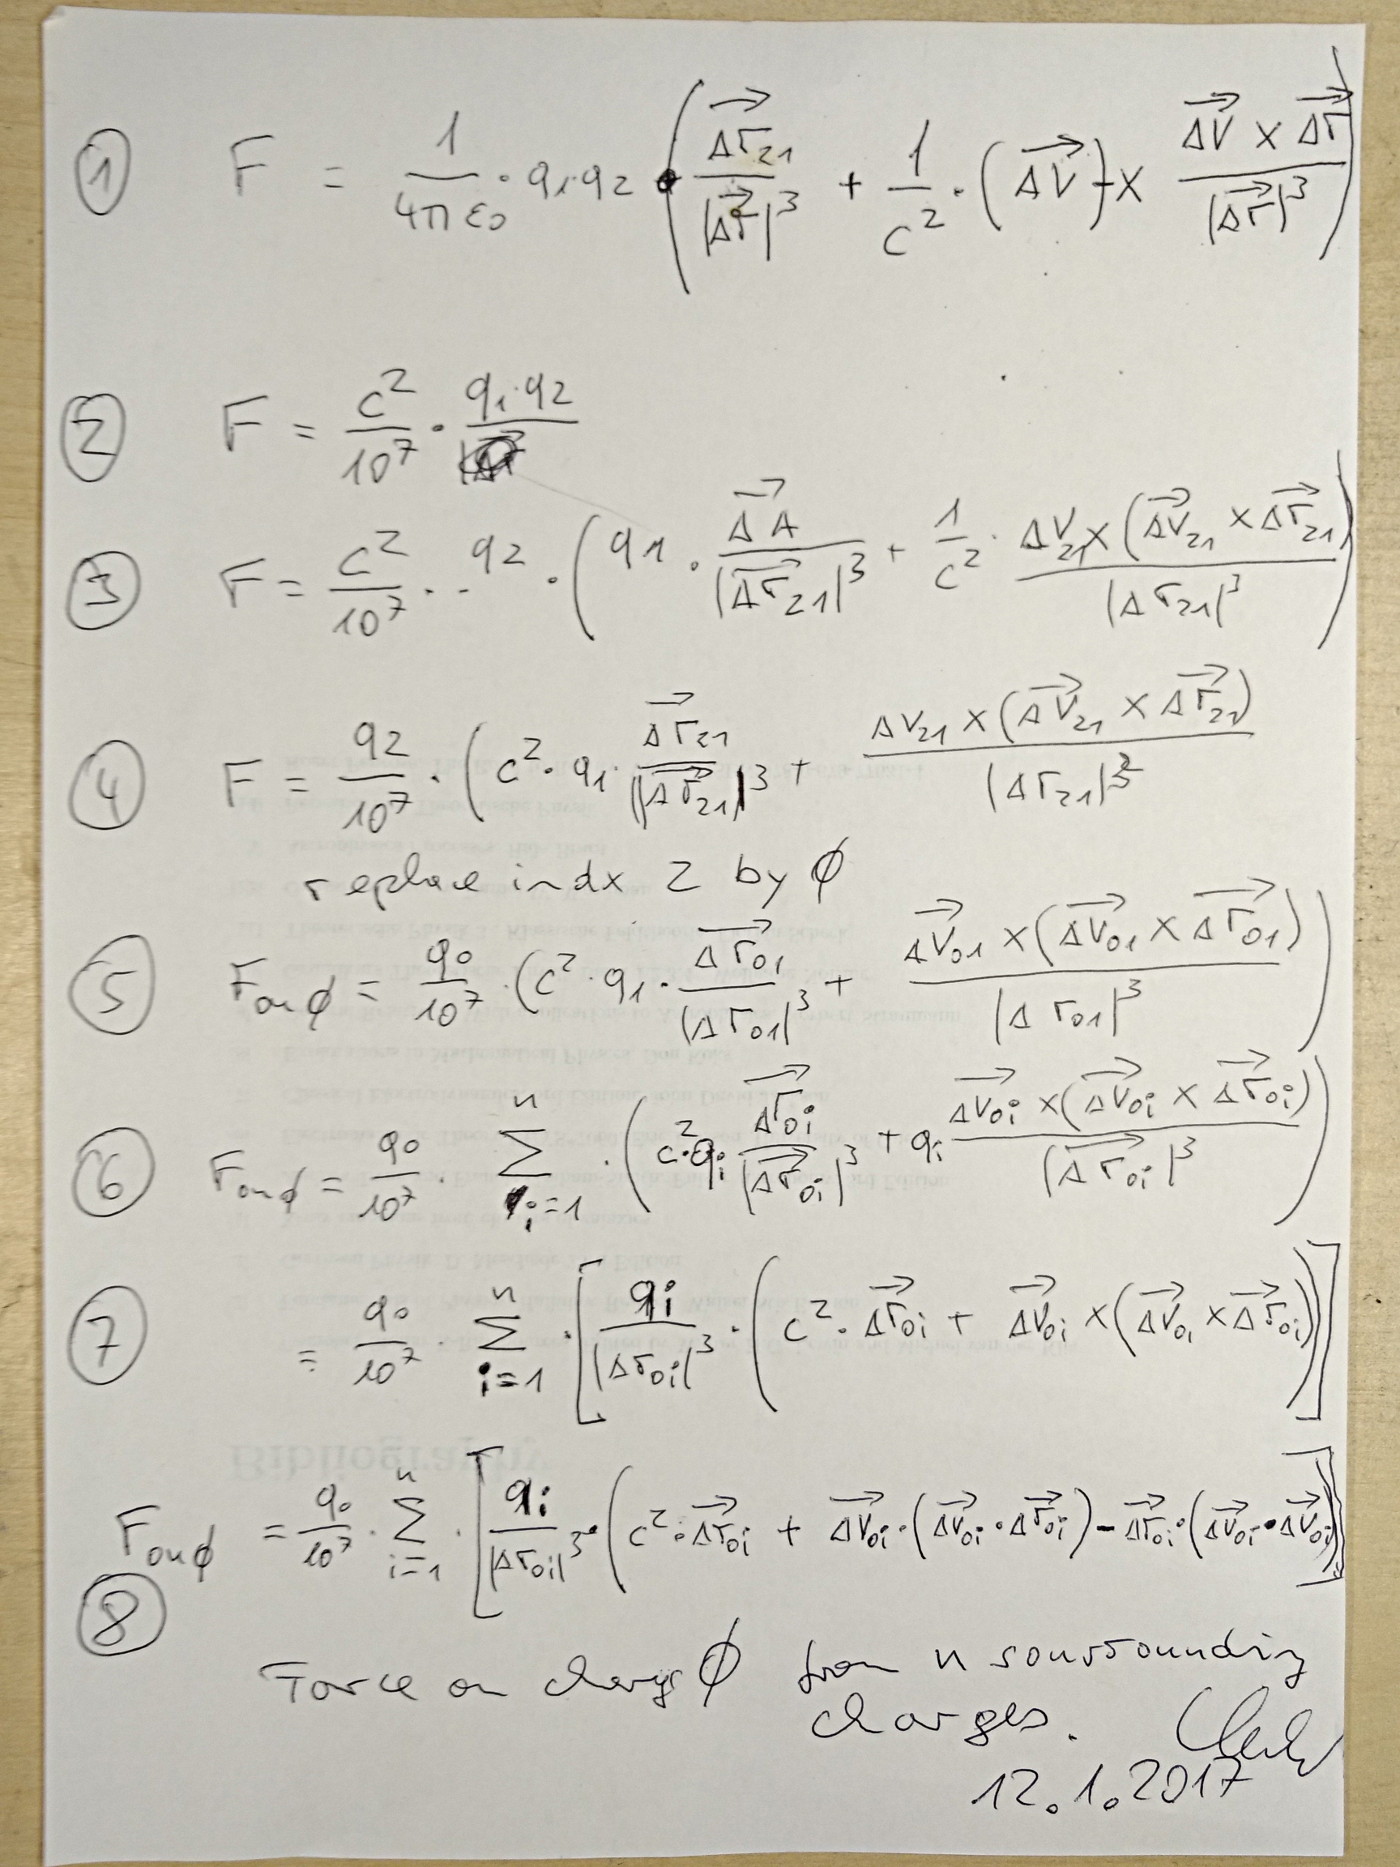 ① F = 1/4πε0 · q1·q2 · ( Δr21→ / |Δr→|³ + 1/c² · (ΔV→) × ΔV→ × Δr→ / |Δr→|³ )
② F = c²/10⁷ · q1·q2
③ F = c²/10⁷ · · q2 · ( q1 · ΔA→ / |Δr21→|³ + 1/c² · ΔV21 × (ΔV21→ × Δr21→) / |Δr21|³ )
④ F = q2/10⁷ · ( c² · q1 · Δr21→ / |Δr21→|³ + ΔV21 × (ΔV21→ × Δr21→) / |Δr21|³
replace indx 2 by ϕ
⑤ F on ϕ = q0/10⁷ · ( c² · q1 · Δr01→ / |Δr01|³ + ΔV01→ × (ΔV01→ × Δr01→) / |Δr01|³ )
⑥ F on ϕ = q0/10⁷ · n Σ i=1 · ( c² · qi · Δr0i→ / |Δr0i→|³ + qi ΔV0i→ × (ΔV0i→ × Δr0i→) / |Δr0i→|³ )
⑦ = q0/10⁷ · n Σ i=1 · [ qi / |Δr0i|³ · ( c² · Δr0i→ + ΔV0i→ × (ΔV0i→ × Δr0i→) ) ]
F on ϕ = q0/10⁷ · n Σ i=1 · [ qi / |Δr0i|³ · ( c² · Δr0i→ + ΔV0i→ · (ΔV0i→ · Δr0i→) - Δr0i→ · (ΔV0i→ · ΔV0i→) ) ]
⑧
Force on charge ϕ from n sourrounding
charges.
12.1.2017